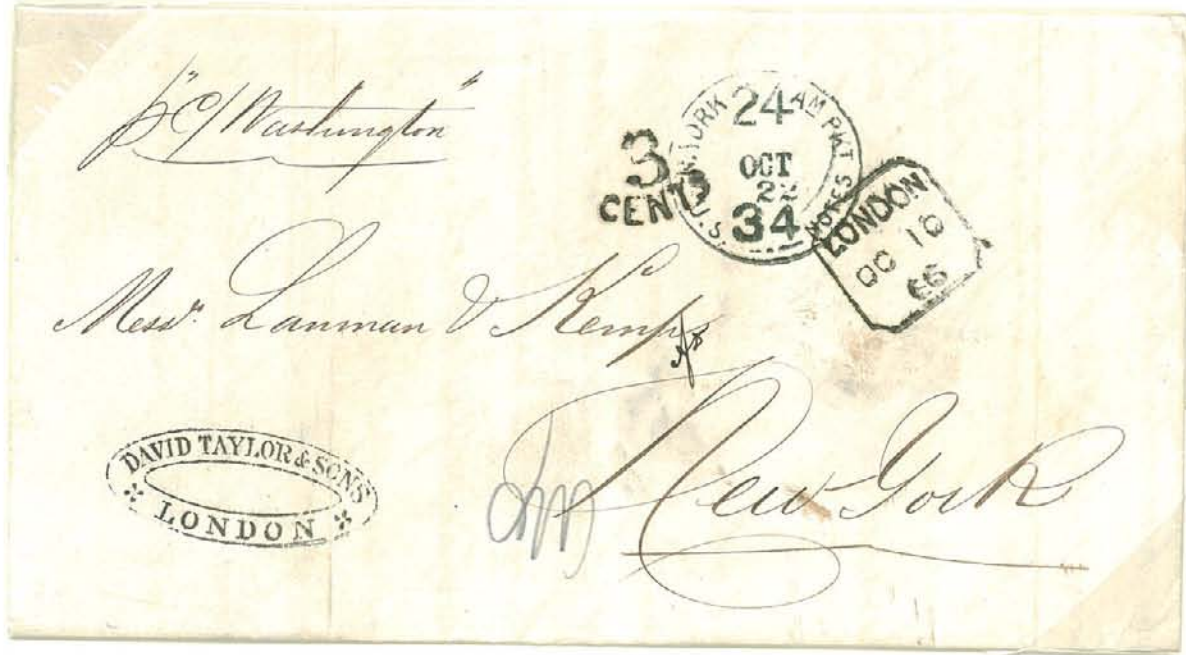 p "C/Washington"
3
CENTS
N. YORK AM PKT
24
OCT
22
34
U.S. NOTES
LONDON
OC 10
66
Messrs. Lanman & Kemp
New York
DAVID TAYLOR & SONS
LONDON